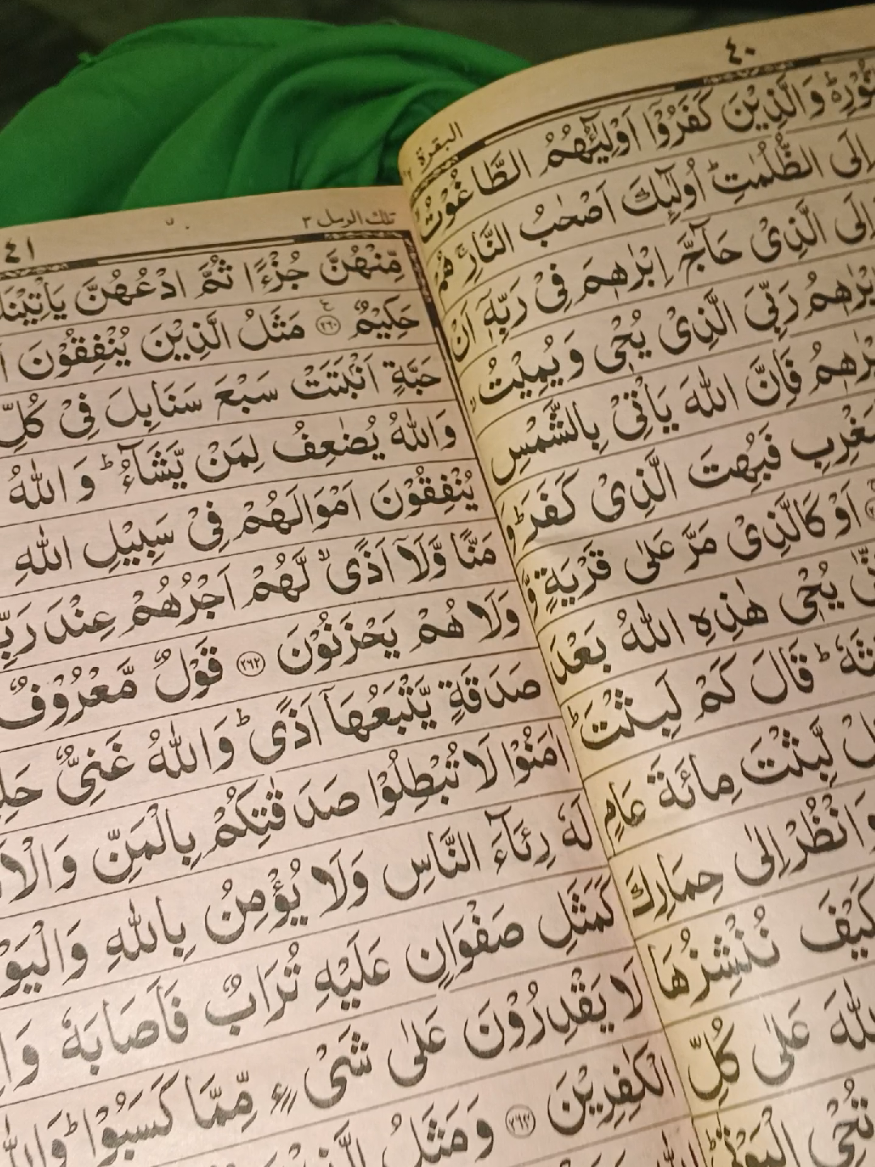 ٤٠
البقرة ٢
وَالَّذِيْنَ كَفَرُوْۤا اَوْلِيٰٓـُٔهُمُ الطَّاغُوْتُ
اِلَى الظُّلُمٰتِ ؕ اُولٰٓئِكَ اَصْحٰبُ النَّارِ ۚ هُمْ
اِلَى الَّذِىْ حَآجَّ اِبْرٰهٖمَ فِىْ رَبِّهٖۤ اَنْ
رَبِّىَ الَّذِىْ يُحْىٖ وَيُمِيْتُ ۙ
فَاِنَّ اللّٰهَ يَاْتِىْ بِالشَّمْسِ
فَبُهِتَ الَّذِىْ كَفَرَ ؕ وَ
اَوْ كَالَّذِىْ مَرَّ عَلٰى قَرْيَةٍ وَّ
يُحْىٖ هٰذِهِ اللّٰهُ بَعْدَ
ؕ قَالَ كَمْ لَبِثْتَ ؕ
لَّبِثْتَ مِائَةَ عَامٍ
وَانْظُرْ اِلٰى حِمَارِكَ
كَيْفَ نُنْشِزُهَا
عَلٰى كُلِّ
تُحْىِ الْمَوْتٰى ؕ
٤١
تلك الرسل ٣
مِّنْهُنَّ جُزْءًا ثُمَّ ادْعُهُنَّ يَاْتِيْنَكَ
حَكِيْمٌ ۝٢٦٠ مَثَلُ الَّذِيْنَ يُنْفِقُوْنَ
حَبَّةٍ اَنْۢبَتَتْ سَبْعَ سَنَابِلَ فِىْ كُلِّ
وَاللّٰهُ يُضٰعِفُ لِمَنْ يَّشَآءُ ؕ وَاللّٰهُ
يُنْفِقُوْنَ اَمْوَالَهُمْ فِىْ سَبِيْلِ اللّٰهِ
مَنًّا وَّلَاۤ اَذًى ۙ لَّهُمْ اَجْرُهُمْ عِنْدَ رَبِّ
وَلَا هُمْ يَحْزَنُوْنَ ۝٢٦٢ قَوْلٌ مَّعْرُوْفٌ
صَدَقَةٍ يَّتْبَعُهَاۤ اَذًى ؕ وَاللّٰهُ غَنِىٌّ حَلِ
اٰمَنُوْا لَا تُبْطِلُوْا صَدَقٰتِكُمْ بِالْمَنِّ وَالْاَ
لَهٗ رِئَآءَ النَّاسِ وَلَا يُؤْمِنُ بِاللّٰهِ وَالْيَوْ
كَمَثَلِ صَفْوَانٍ عَلَيْهِ تُرَابٌ فَاَصَابَهٗ وَا
لَا يَقْدِرُوْنَ عَلٰى شَىْءٍ مِّمَّا كَسَبُوْا ؕ وَاللّٰ
الْكٰفِرِيْنَ ۝٢٦٣ وَمَثَلُ